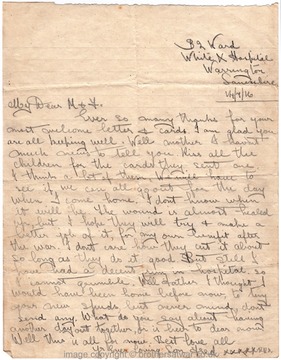 B2 Ward
White X Hospital
Warrington
Lancashire
My Dear M & F.
Ever so many thanks for your
most welcome letter & cards. I am glad you
are all keeping well. Well mother I haven't
much news to tell you kiss all the
children for the cards they sent me
I think a lot of them. We
see if we can all go out for the day
when I come home. I don't know when
it will be the wound is almost healed
but I hope they will try & make a
better job of it for my own benefit after
the war. I don't care how they cut it about
so long as they do it good. But still I
have had a decent in hospital so
I cannot grumble. Well Father I thought I
would have been home before now to
never mind, don't
send any. What do you say about having
another day out together, or is best to dear mum
Well this is all for now. Best love all